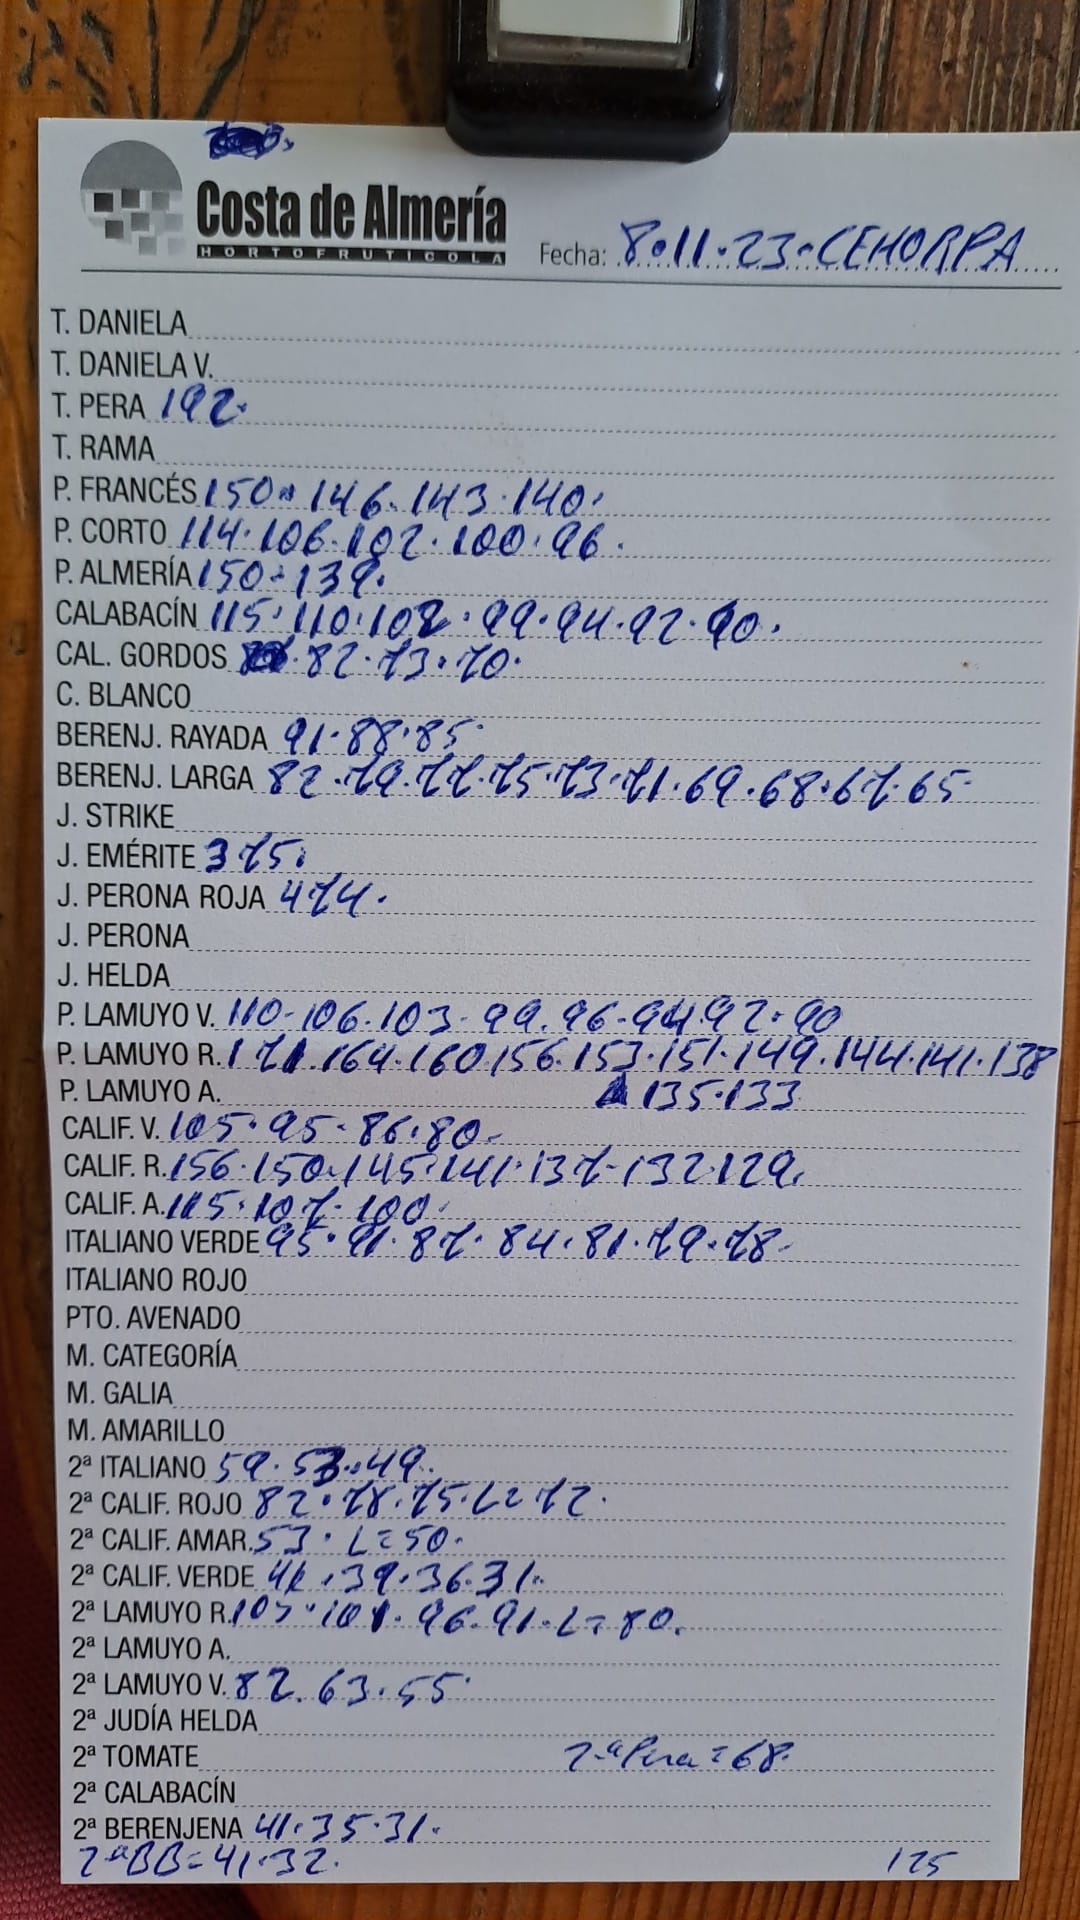 Costa de Almería
HORTOFRUTICOLA
Fecha: 8·11·23·CEHORPA
T. DANIELA
T. DANIELA V.
T. PERA 192·
T. RAMA
P. FRANCÉS 150·146·143·140·
P. CORTO 114·106·102·100·96·
P. ALMERÍA 150·139·
CALABACÍN 115·110·102·99·94·92·90·
CAL. GORDOS 82·73·70·
C. BLANCO
BERENJ. RAYADA 91·88·85·
BERENJ. LARGA 82·79·77·75·73·71·69·68·67·65·
J. STRIKE
J. EMÉRITE 375·
J. PERONA ROJA 474·
J. PERONA
J. HELDA
P. LAMUYO V. 110·106·103·99·96·94·92·90
P. LAMUYO R. 171·164·160·156·153·151·149·144·141·138
P. LAMUYO A. 135·133
CALIF. V. 105·95·86·80·
CALIF. R. 156·150·145·141·137·132·129·
CALIF. A. 115·107·100·
ITALIANO VERDE 95·91·87·84·81·79·78·
ITALIANO ROJO
PTO. AVENADO
M. CATEGORÍA
M. GALIA
M. AMARILLO
2ª ITALIANO 59·53·49·
2ª CALIF. ROJO 82·78·75·L=72·
2ª CALIF. AMAR. 53·L=50·
2ª CALIF. VERDE 41·39·36·31·
2ª LAMUYO R. 105·101·96·91·L=80·
2ª LAMUYO A.
2ª LAMUYO V. 82·63·55·
2ª JUDÍA HELDA
2ª TOMATE 2ªPera=68·
2ª CALABACÍN
2ª BERENJENA 41·35·31·
2ªBB=41·32· 125